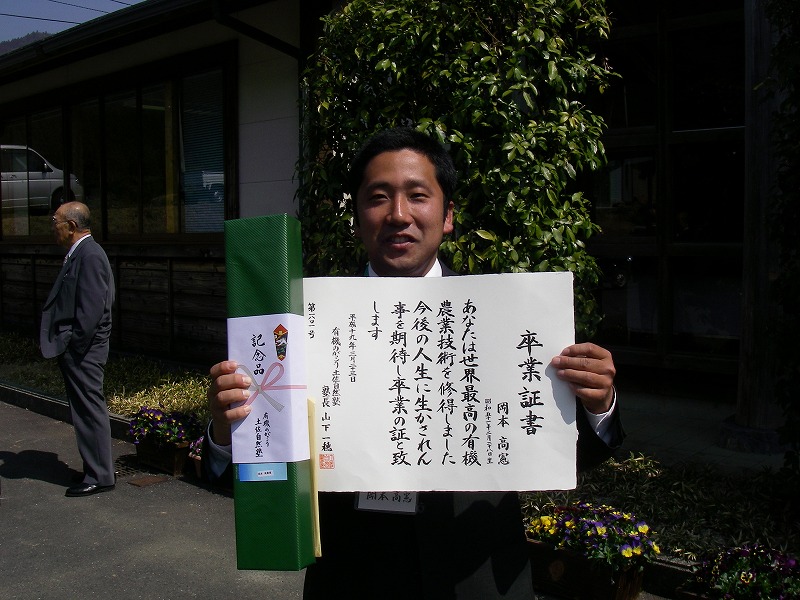 卒業証書
岡本高憲
あなたは世界最高の有機
農業技術を修得しました
今後の人生に生かされん
事を期待し卒業の証と致
します
平成十九年三月二十三日
有機のがっこう土佐自然塾
塾長 山下一穂
記念品
有機のがっこう
土佐自然塾
岡本高憲